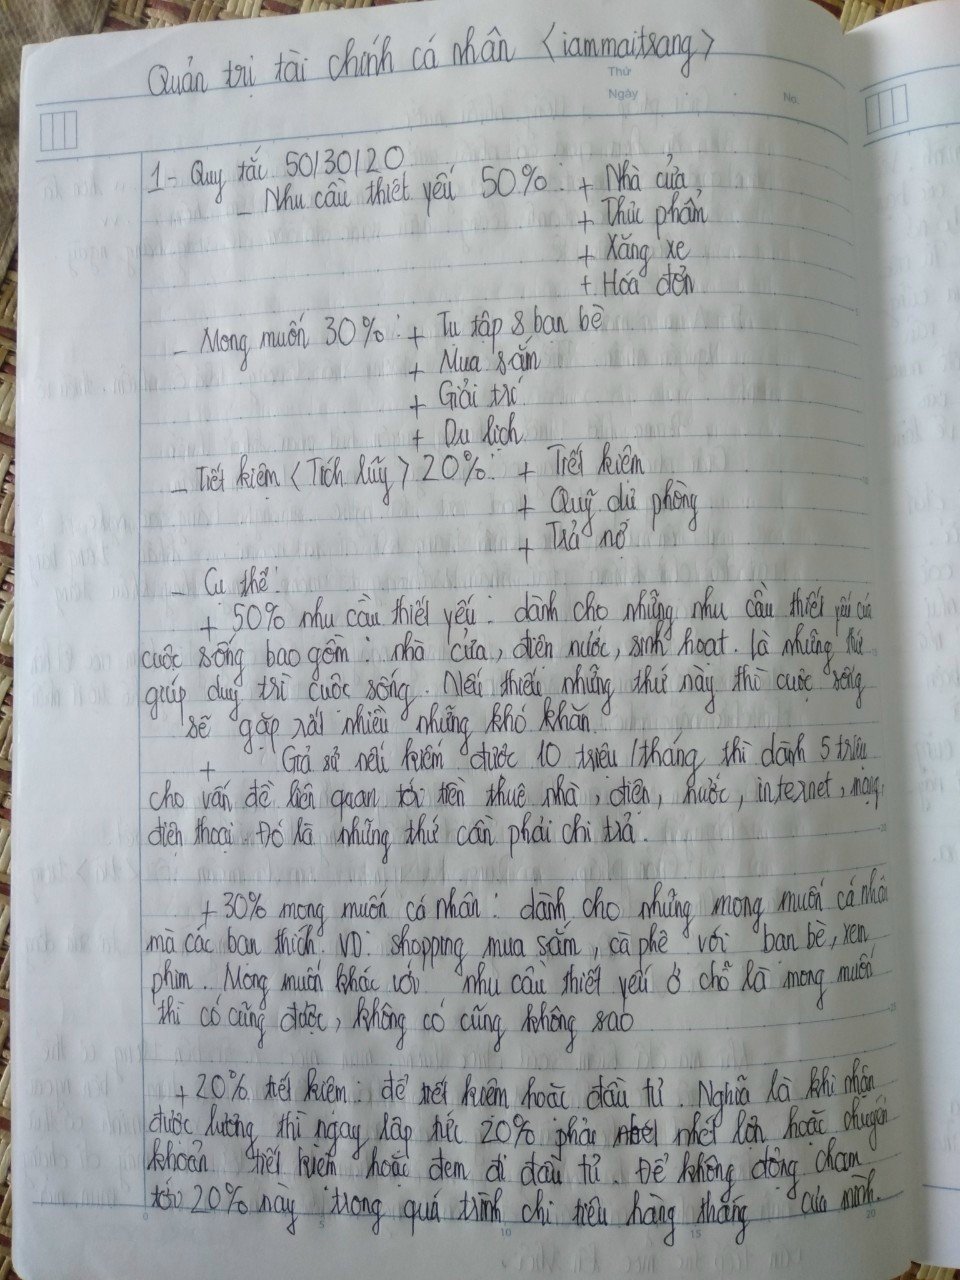 Quản trị tài chính cá nhân <iammaitrang>
Thứ
Ngày
No.
1- Quy tắc 50/30/20
- Nhu cầu thiết yếu 50%: + Nhà cửa
+ Thức phẩm
+ Xăng xe
+ Hóa đơn
- Mong muốn 30%: + Tụ tập & bạn bè
+ Mua sắm
+ Giải trí
+ Du lịch
- Tiết kiệm <Tích lũy> 20%: + Tiết kiệm
+ Quỹ dự phòng
+ Trả nợ
- Cụ thể:
+ 50% nhu cầu thiết yếu: dành cho những nhu cầu thiết yếu của
cuộc sống bao gồm: nhà cửa, điện nước, sinh hoạt. là những thứ
giúp duy trì cuộc sống. Nếu thiếu những thứ này thì cuộc sống
sẽ gặp rất nhiều những khó khăn.
+ Giả sử nếu kiếm được 10 triệu/tháng thì dành 5 triệu
cho vấn đề liên quan tới tiền thuê nhà, điện, nước, internet, mạng
điện thoại. Đó là những thứ cần phải chi trả.
+ 30% mong muốn cá nhân: dành cho những mong muốn cá nhân
mà các bạn thích. VD: shopping mua sắm, cà phê với bạn bè, xem
phim. Mong muốn khác với nhu cầu thiết yếu ở chỗ là mong muốn
thì có cũng được, không có cũng không sao
+ 20% tiết kiệm: để tiết kiệm hoặc đầu tư. Nghĩa là khi nhận
được lương thì ngay lập tức 20% phải nhét lợn hoặc chuyển
khoản tiết kiệm hoặc đem đi đầu tư. Để không động chạm
tới 20% này trong quá trình chi tiêu hàng tháng của mình.
0
5
10
15
20
5
10
15
20
25